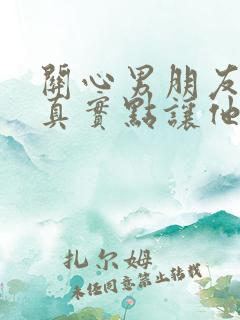 關心男朋友
真實點讓他
扎尔姆
未经同意禁止转载